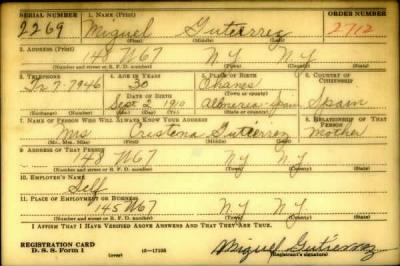 SERIAL NUMBER 1. NAME (Print) ORDER NUMBER
2269 Miguel Gutierrez 2712
(First) (Middle) (Last)
2. ADDRESS (Print)
148 W 67 N.Y. N.Y.
(Number and street or R. F. D. number) (Town) (County) (State)
3. TELEPHONE 4. AGE IN YEARS 5. PLACE OF BIRTH 6. COUNTRY OF CITIZENSHIP
7-7946 30 Ohanes
DATE OF BIRTH (Town or county)
Sept 2 1910 Almeria Spain Spain
(Exchange) (Number) (Mo.) (Day) (Yr.) (State or country)
7. NAME OF PERSON WHO WILL ALWAYS KNOW YOUR ADDRESS 8. RELATIONSHIP OF THAT PERSON
Mrs Cristena Gutierrez Mother
(Mr., Mrs., Miss) (First) (Middle) (Last)
9. ADDRESS OF THAT PERSON
148 W67 N.Y. N.Y.
(Number and street or R. F. D. number) (Town) (County) (State)
10. EMPLOYER'S NAME
Self
11. PLACE OF EMPLOYMENT OR BUSINESS
145 W67 N.Y. N.Y.
(Number and street or R. F. D. number) (Town) (County) (State)
I AFFIRM THAT I HAVE VERIFIED ABOVE ANSWERS AND THAT THEY ARE TRUE.
REGISTRATION CARD
D. S. S. Form 1 (over) 16—17105 Miguel Gutierrez
(Registrant's signature)